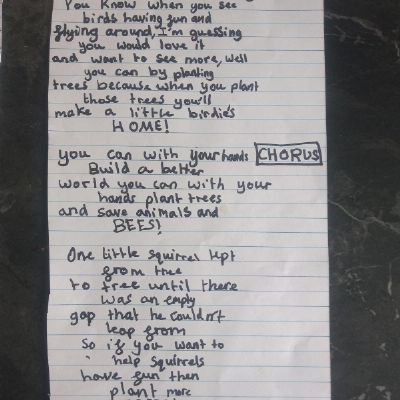 You know when you see
birds having fun and
flying around, I'm guessing
you would love it
and want to see more, well
you can by planting
trees because when you plant
those trees you'll
make a little birdie's
HOME!
you can with your hands CHORUS
Build a better
world you can with your
hands plant trees
and save animals and
BEES!
One little squirrel lept
from tree
to tree until there
was an empty
gap that he couldn't
leap from
So if you want to
help squirrels
have fun then
plant more